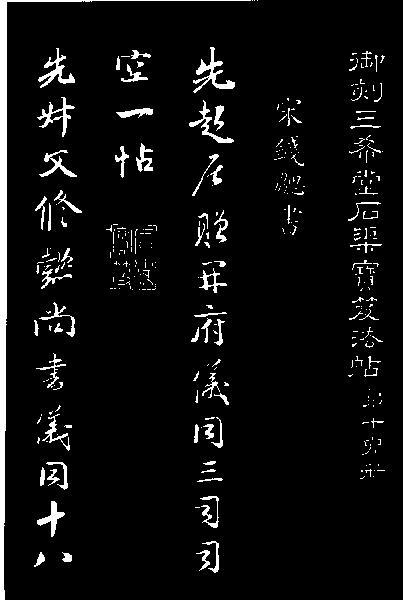 御刻三希堂石渠寶笈法帖第十四册
宋錢勰書
先起居贈開府儀同三司司
空一帖
先叔父修懿尚書儀同十八